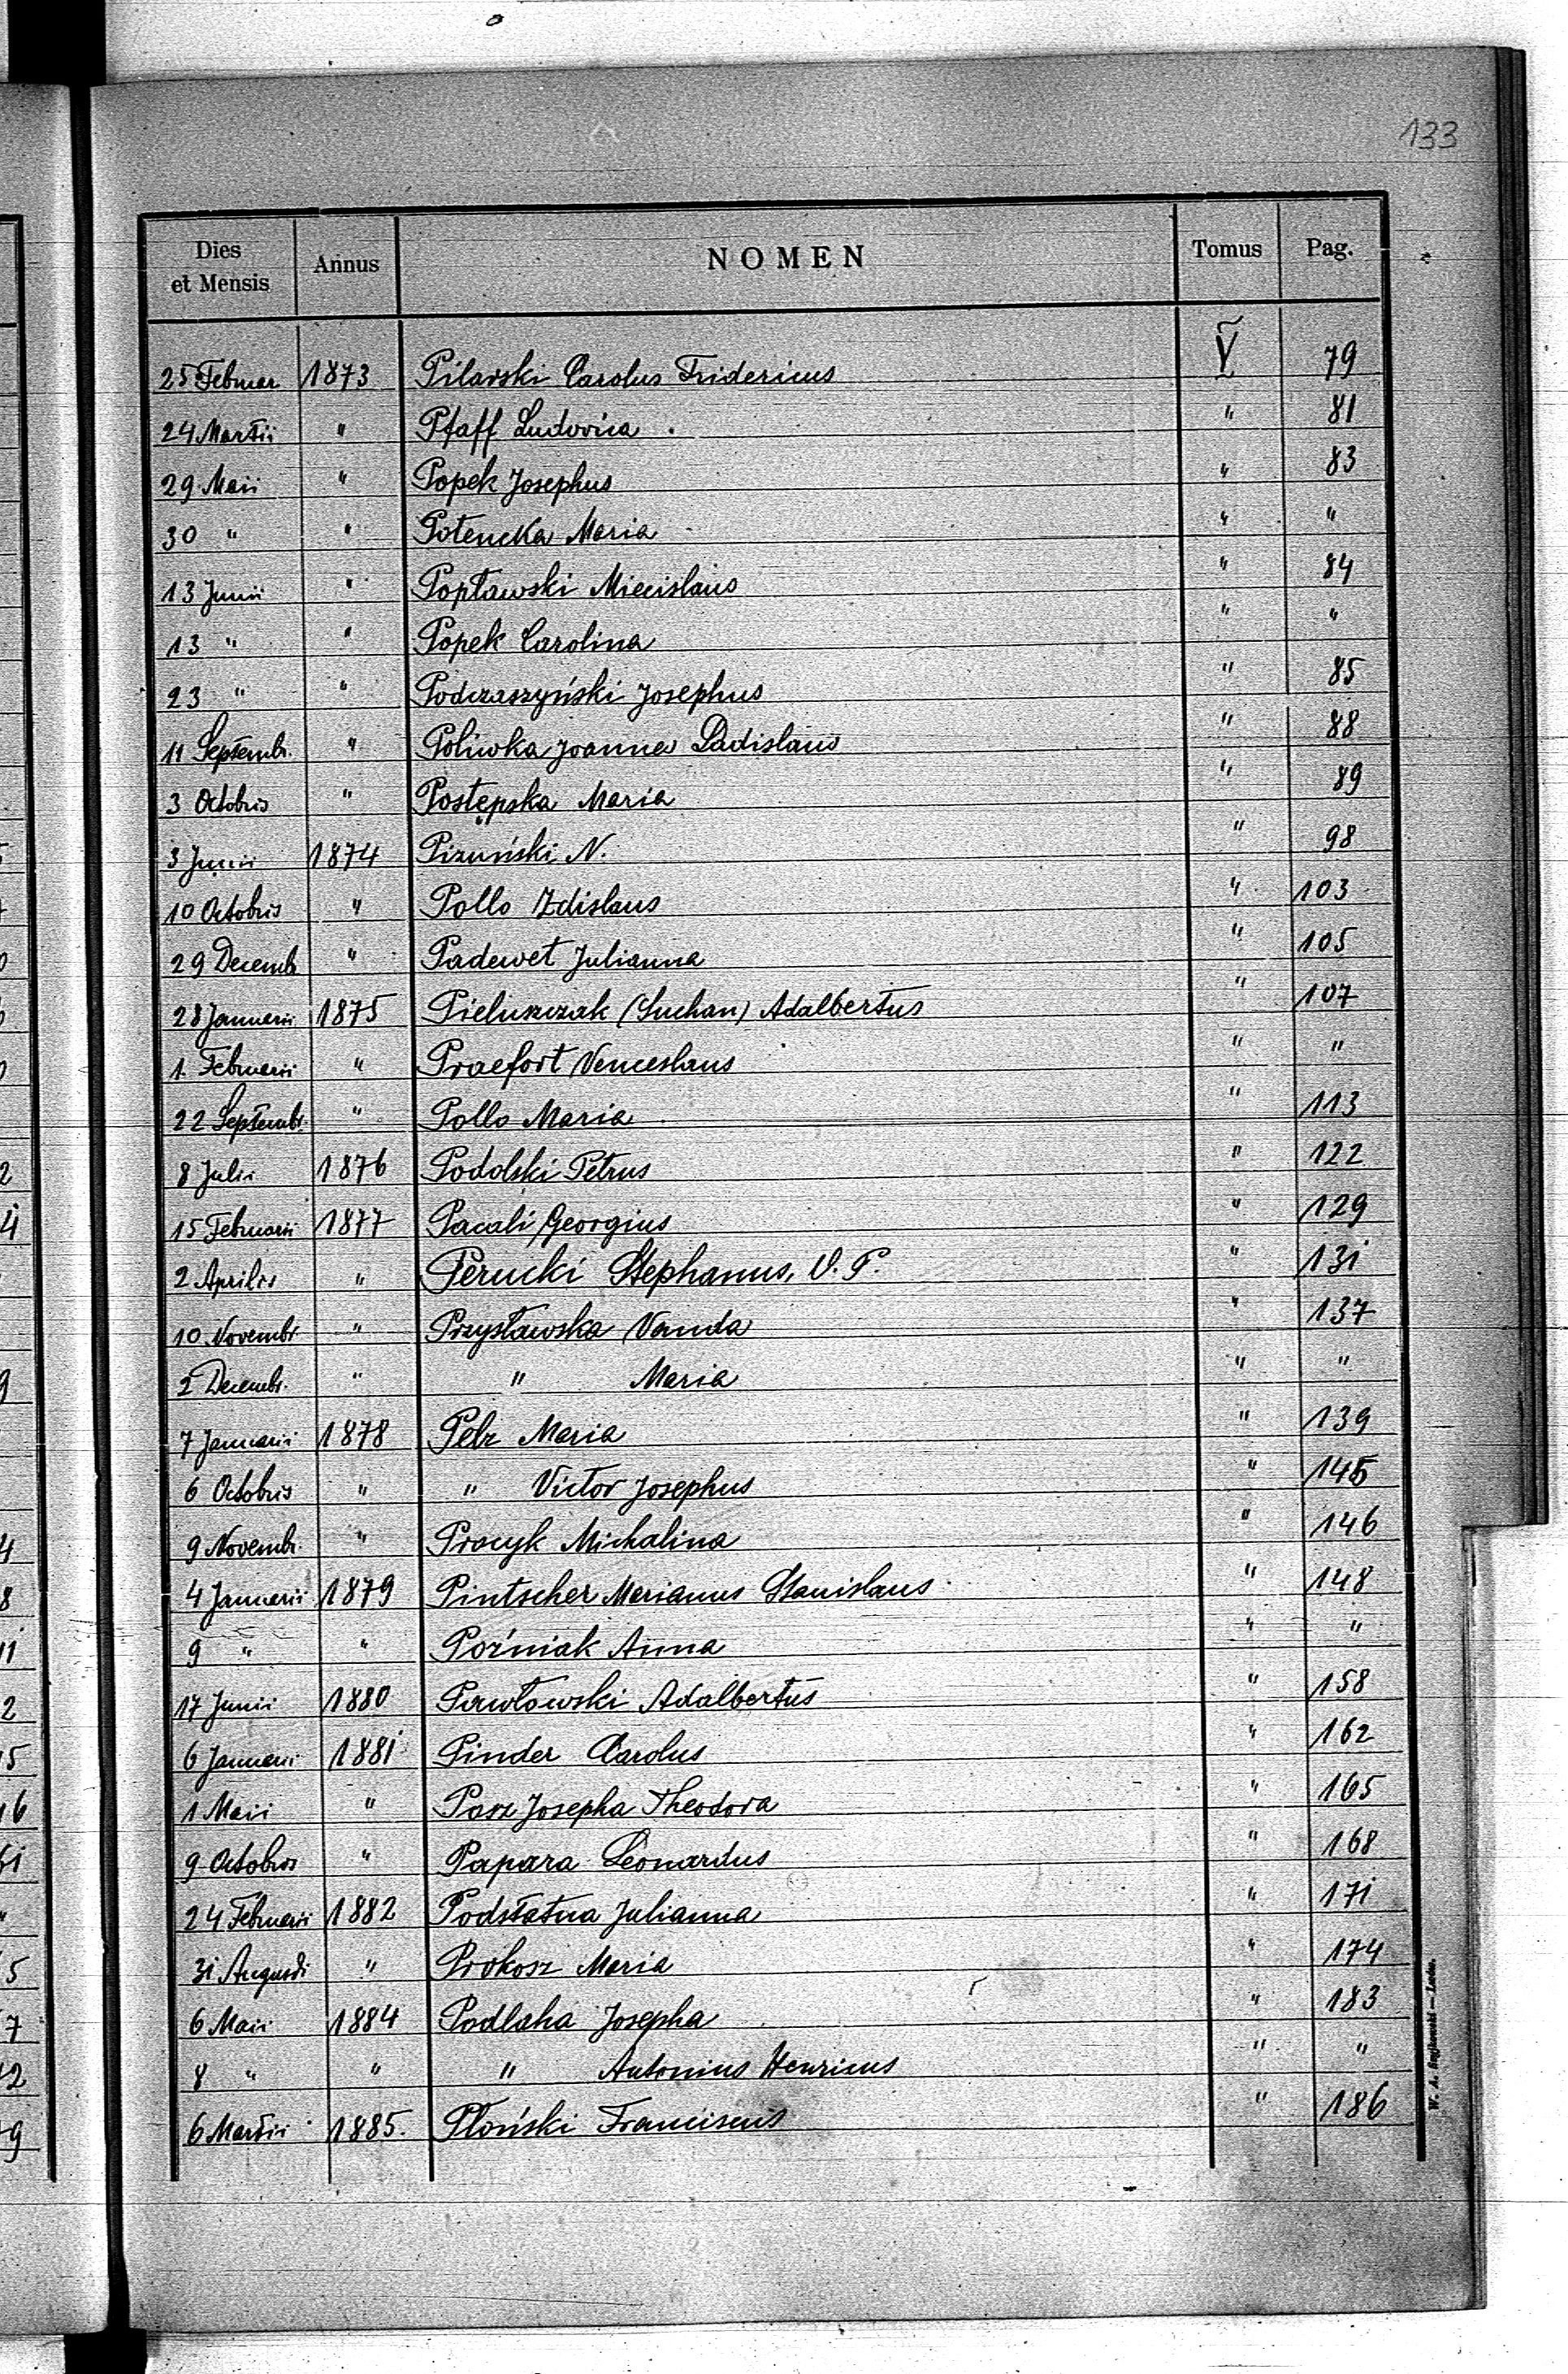 133
Dies et Mensis Annus NOMEN Tomus Pag.
25 Februar 1873 Pilarski Carolus Fridericus V 79
24 Martii " Pfaff Ludovica " 81
29 Maii " Popek Josephus " 83
30 " " Potencka Maria " "
13 Junii " Popławski Miecislaus " 84
13 " " Popek Carolina " "
23 " " Podczaszyński Josephus " 85
11 Septembr. " Poliwka Joannes Ladislaus " 88
3 Octobris " Postępska Maria " 89
3 Junii 1874 Pizuński N. " 98
10 Octobris " Pollo Zdislaus " 103
29 Decemb " Padewet Julianna " 105
28 Januarii 1875 Pieluszczak (Suchan) Adalbertus " 107
1. Februarii " Praefort Venceslaus " "
22 Septembr. " Pollo Maria " 113
8 Julii 1876 Podolski Petrus " 122
15 Februarii 1877 Pacali Georgius " 129
2 Aprilis " Perucki Stephanus, V. P. " 131
10 Novembr. " Przysławska Vanda " 137
2 Decembr. " " Maria " "
7 Januarii 1878 Pelz Maria " 139
6 Octobris " " Victor Josephus " 145
9 Novembr. " Procyk Michalina " 146
4 Januarii 1879 Pintscher Marianus Stanislaus " 148
9 " " Poźniak Anna " "
17 Junii 1880 Pawłowski Adalbertus " 158
6 Januarii 1881 Pinder Carolus " 162
1 Maii " Parz Josepha Theodora " 165
9 Octobris " Papara Leonardus " 168
24 Februarii 1882 Podstatna Julianna " 171
31 Augusti " Prokosz Maria " 174
6 Maii 1884 Podlaha Josepha " 183
8 " " " Antonius Henricus " "
6 Martii 1885. Płoński Franciscus " 186